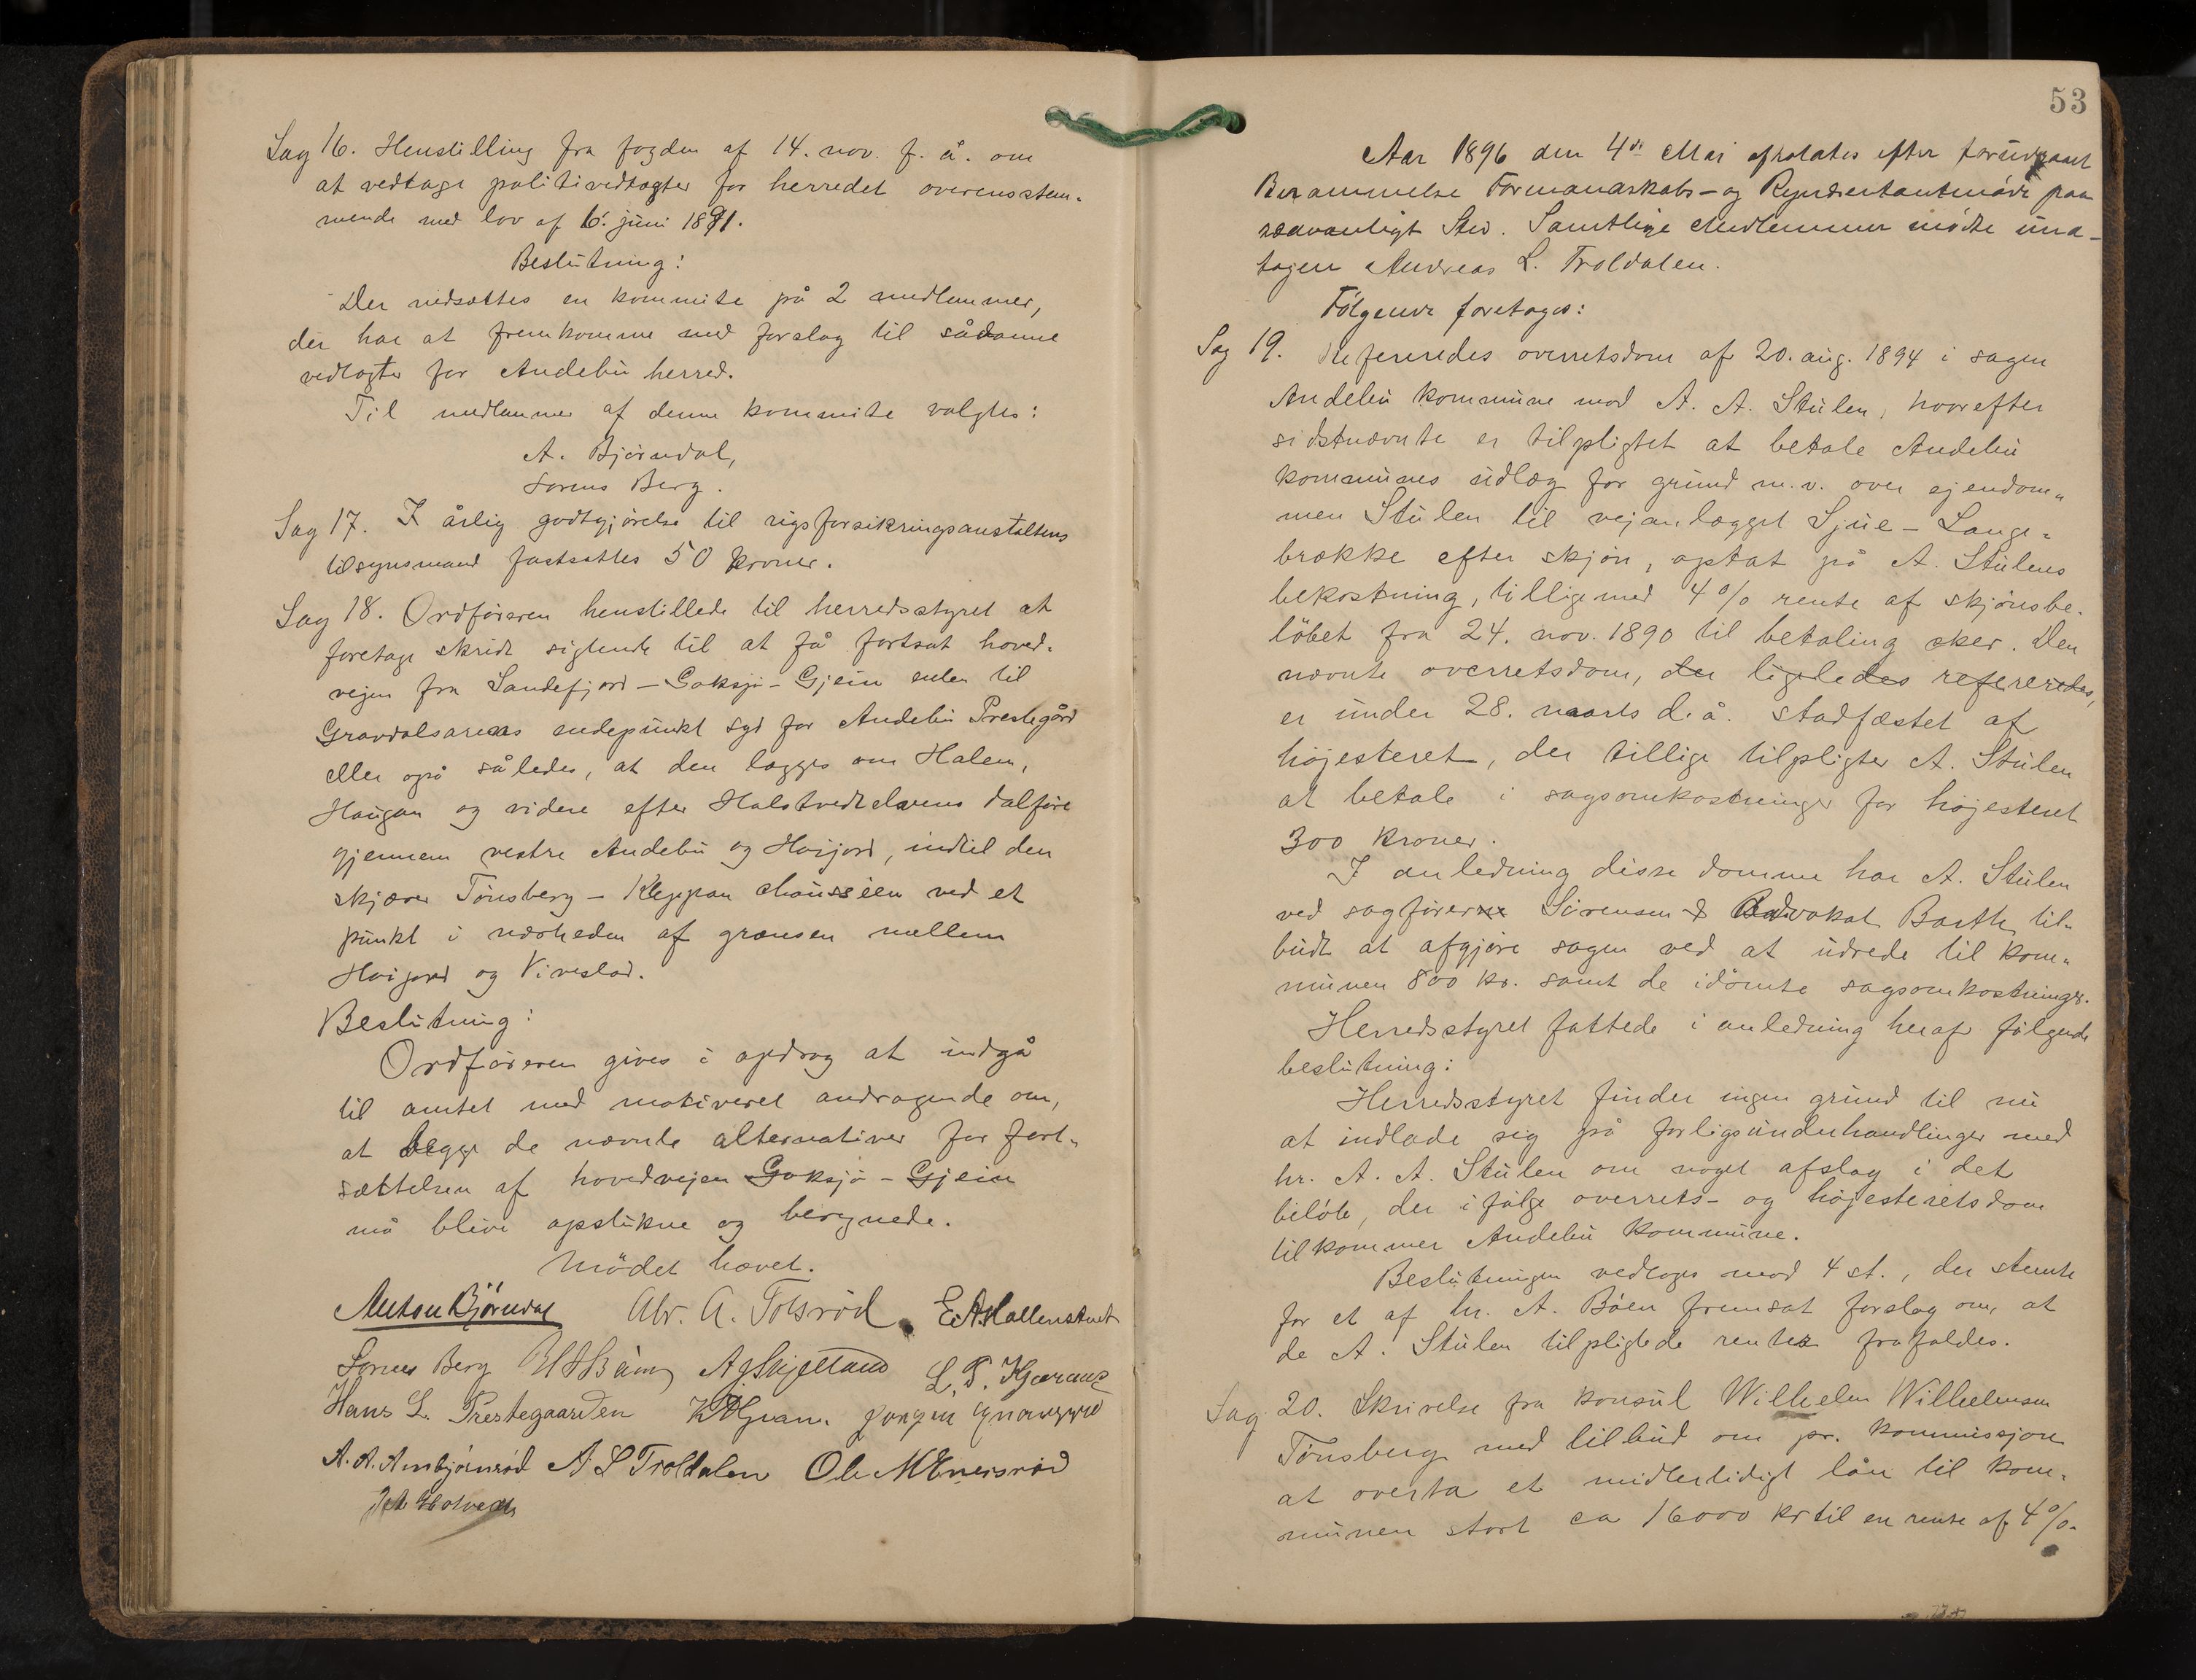 Sag 16. Henstilling fra fogden af 14. nov. f. å. om
at vedtage politivedtægter for herredet overensstem-
mende med lov af 6. juni 1891.
Beslutning:
Der nedsættes en kommite på 2 medlemmer,
der har at fremkomme med forslag til sådanne
vedtægter for Andebu herred.
Til medlemmer af denne kommite valgtes:
A. Bjørndal,
Sørens Berg.
Sag 17. I årlig godtgjørelse til rigsforsikringsanstaltens
tilsynsmand fastsattes 50 kroner.
Sag 18. Ordføreren henstillede til herredsstyret at
foretage skridt sigtende til at få fortsat hoved-
vejen fra Sandefjord - Goksjø - Gjein enten til
Gravdalsarmens endepunkt syd for Andebu Prestegård
eller også således, at den lægges om Halen,
Haugan og videre efter Halstvedtelvens dalføre
gjennem vestre Andebu og Høijord, indtil den
skjærer Tønsberg - Keppan chausséen ved et
punkt i nærheden af grænsen mellem
Høijord og Vivestad.
Beslutning:
Ordføreren gives i opdrag at indgå
til amtet med motiveret andragende om,
at begge de nævnte alternativer for fort-
sættelsen af hovedvejen Goksjø - Gjein
må blive opstukne og beregnede.
Mødet hævet.
Anton Bjørndal Abr. A. Tolsrød E. A. Møllenstad
Sørens Berg A Gskjelland
Hans L. Prestegaarden
A. A. Anbjørnsrød A L Troldalen Ole M Eneisrød
53
Aar 1896 den 4de Mai afholdtes efter forudgaaet
Berammelse Formandskabs- og Repræsentantmøde paa
sædvanligt Sted. Samtlige Medlemmer mødte und-
tagen Andreas L. Troldalen.
Følgende foretoges:
Sag 19. Refereredes overretsdom af 20. aug. 1894 i sagen
Andebu kommune mod A. A. Stulen, hvorefter
sidstnævnte er tilpligtet at betale Andebu
kommunes udlæg for grund m. v. over ejendom-
men Stulen til vejanlægget Sjue - Lange-
brække efter skjøn, optat på A. Stulens
bekostning, tilligemed 4 % rente af skjønsbe-
løbet fra 24. nov. 1890 til betaling sker. Den
nævnte overretsdom, der ligeledes refereredes,
er under 28. marts d. å. stadfæstet af
højesteret, der tillige tilpligter A. Stulen
at betale i sagsomkostninger for højesteret
300 kroner.
I anledning disse domme har A. Stulen
ved sagfører Sørensen & Advokat Barth til-
budt at afgjøre sagen ved at udrede til kom-
munen 800 kr. samt de idømte sagsomkostninger.
Herredsstyret fattede i anledning heraf følgende
beslutning:
Herredsstyret finder ingen grund til nu
at indlade sig på forligsunderhandlinger med
hr. A. A. Stulen om noget afslag i det
beløb, der ifølge overrets- og højesteretsdom
tilkommer Andebu kommune.
Beslutningen vedtoges mod 4 st., der stemte
for et af hr. A. Bøen fremsat forslag om, at
de A. Stulen tilpligtede renter frafaldes.
Sag 20. Skrivelse fra konsul Wilhelm Wilhelmsen
Tønsberg med tilbud om pr. kommission
at overta et midlertidigt lån til kom-
munen stort ca 16000 kr til en rente af 4 %.